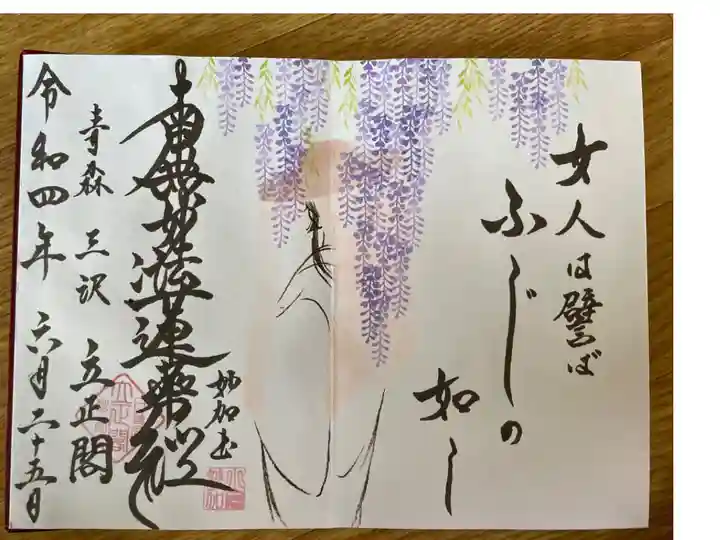 女人は譬ば
ふじの
如し
南無妙法蓮華経
妙加
青森 三沢 立正閣
令和四年 六月二十五日